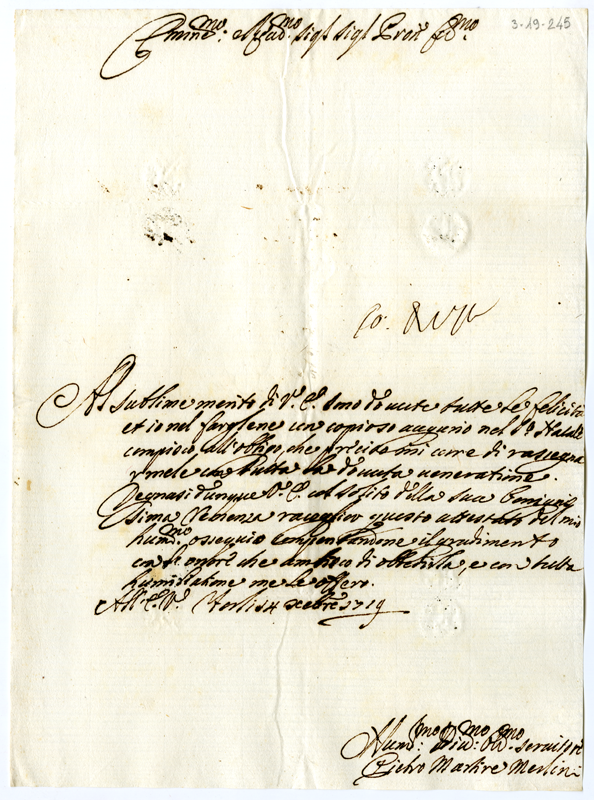 3-19-245
Emin.mo e Rev.mo Sig.r Sig.r Pron. Col.mo
Al sublime merito di V.ª E.ª sono dovute tutte le felicità
et io nel fargliene un copioso augurio nel S.º Natale
compisco all'obligo, che precisa mi corre di rassegnar
mele con tutta la dovuta veneratione.
Degnasi dunque V.ª E.ª col solito della sua benignis
sima clemenza questo attestato del mio
hum.mo ossequio compensandone il gradimento
con l'onore che ambisco di obbedirla, e con tutta
humiliatione me le offero.
All' E. V.ª Forlì 14 Xebre 1719
Hum.mo Div.mo Obl.mo servitore
Pietro Martire Merlini